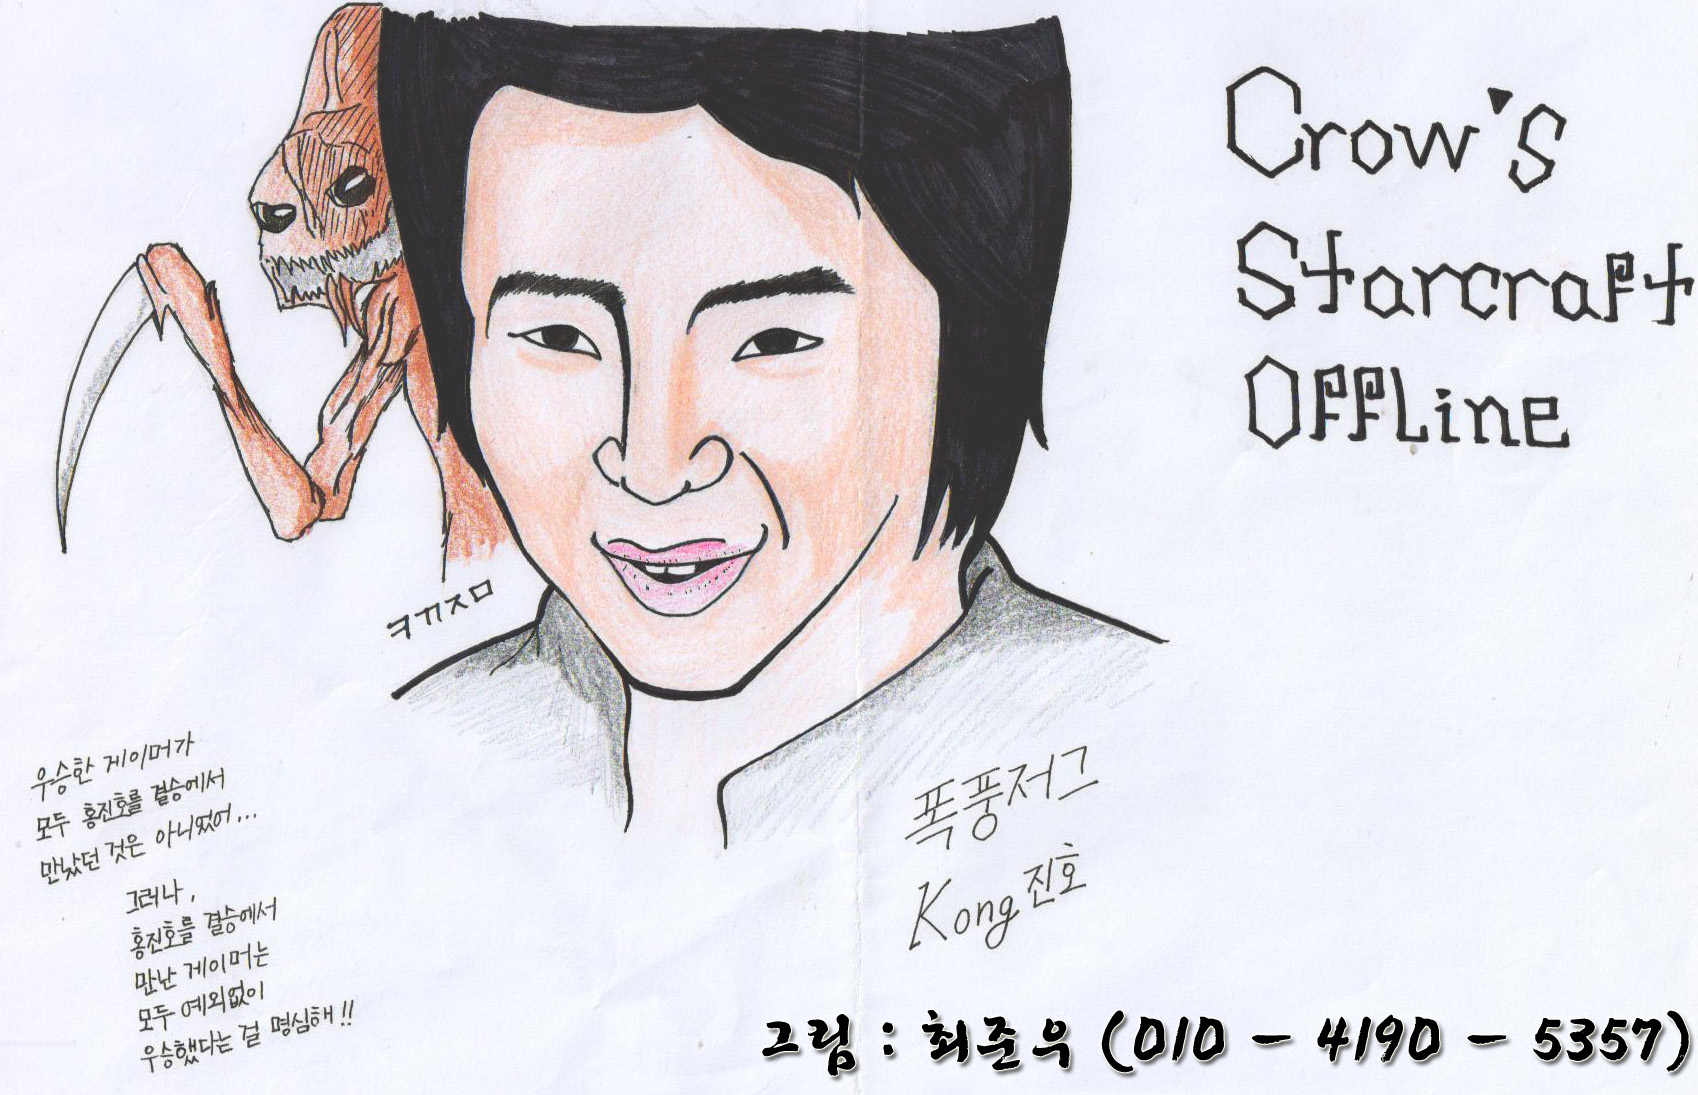 Crow's
Starcraft
Offline
ㅋㄲㅈㅁ
우승한 게이머가
모두 홍진호를 결승에서
만났던 것은 아니었어...
그러나,
홍진호를 결승에서
만난 게이머는
모두 예외없이
우승했다는 걸 명심해!!
폭풍저그
Kong진호
그림 : 최준우 (010 - 4190 - 5357)